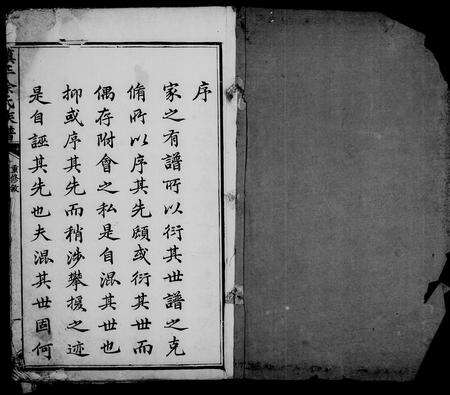 序
家之有譜所以衍其世譜之克
脩所以序其先顧或衍其世而
偶存附會之私是自混其世也
抑或序其先而稍涉攀援之迹
是自誣其先也夫混其世固何
氏家譜
重修敘